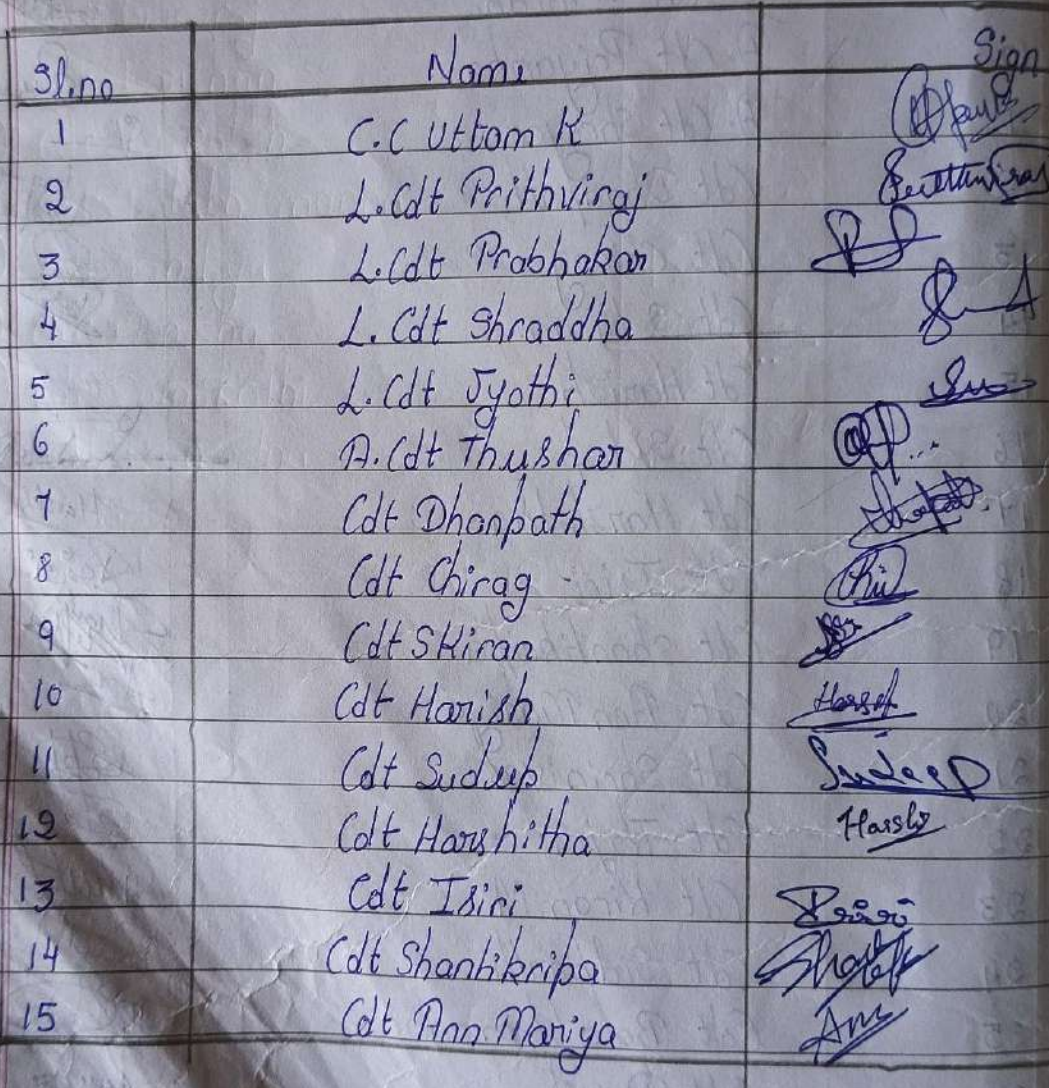 Sl.no Name Sign
1 C.C Uttam K
2 L.Cdt Prithviraj
3 L.Cdt Prabhakar
4 L. Cdt Shraddha
5 L.Cdt Jyothi
6 A.Cdt Thushar
7 Cdt Dhanpath
8 Cdt Chirag Chi
9 Cdt SKiran
10 Cdt Harish
11 Cdt Sudeep Sudeep
12 Cdt Harshitha
13 Cdt Isiri
14 Cdt Shantikripa
15 Cdt Ann Mariya Ann